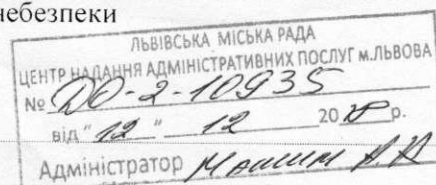 небезпеки
ЛЬВІВСЬКА МІСЬКА РАДА
ЦЕНТР НАДАННЯ АДМІНІСТРАТИВНИХ ПОСЛУГ м.ЛЬВОВА
№ ДО-2-10935
від "12" 12 20 р.
Адміністратор